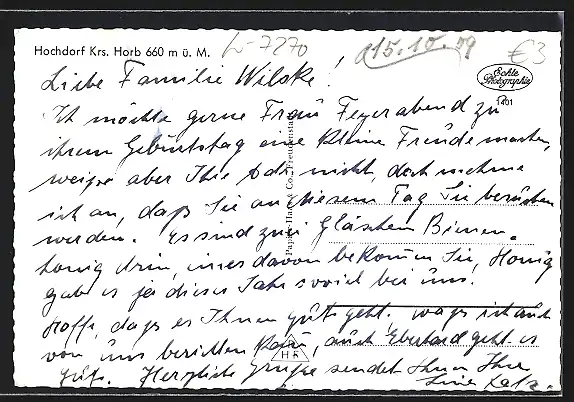 Hochdorf Krs. Horb 660 m ü. M.
L-7270
15.10.09
€3
Echte Photographie
1401
Liebe Familie Wilske!
Ich möchte gerne Frau Feyerabend zu
ihrem Geburtstag eine kleine Freude machen,
weiss aber Ihre Adr. nicht, doch nehme
ich an, dass Sie an diesem Tag Sie besuchen
werden. Es sind zwei Gläschen Bienen-
honig drin, eines davon bekommen Sie, Honig
gab es ja dieses Jahr soviel bei uns.
Hoffe, dass es Ihnen gut geht. was ich auch
von uns berichten kann, auch Eberhard geht es
gut. Herzliche Grüsse sendet Ihnen Ihre
Papier-Haus & Co., Freudenstadt
HK